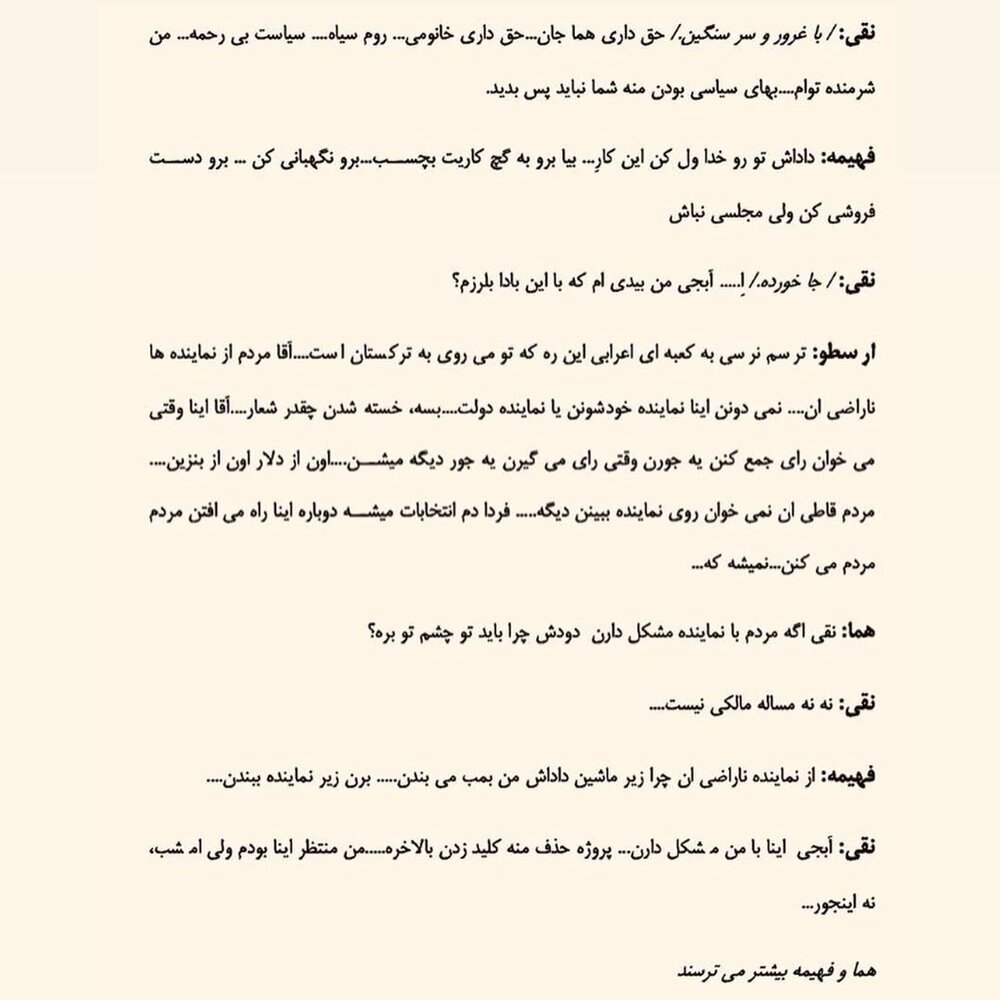 نقی: / با غرور و سر سنگین./ حق داری هما جان...حق داری خانومی... روم سیاه.... سیاست بی رحمه... من
شرمنده توام....بهای سیاسی بودن منه شما نباید پس بدید.
فهیمه: داداش تو رو خدا ول کن این کارِ... بیا برو به گچ کاریت بچسب...برو نگهبانی کن ... برو دست
فروشی کن ولی مجلسی نباش
نقی: / جا خورده./ اِ..... آبجی من بیدی ام که با این بادا بلرزم؟
ارسطو: ترسم نرسی به کعبه ای اعرابی این ره که تو می روی به ترکستان است....آقا مردم از نماینده ها
ناراضی ان.... نمی دونن اینا نماینده خودشونن یا نماینده دولت....بسه، خسته شدن چقدر شعار....آقا اینا وقتی
می خوان رای جمع کنن یه جورن وقتی رای می گیرن یه جور دیگه میشن....اون از دلار اون از بنزین....
مردم قاطی ان نمی خوان روی نماینده ببینن دیگه..... فردا دم انتخابات میشه دوباره اینا راه می افتن مردم
مردم می کنن...نمیشه که...
هما: نقی اگه مردم با نماینده مشکل دارن دودش چرا باید تو چشم تو بره؟
نقی: نه نه مساله مالکی نیست....
فهیمه: از نماینده ناراضی ان چرا زیر ماشین داداش من بمب می بندن..... برن زیر نماینده ببندن....
نقی: آبجی اینا با من مشکل دارن... پروژه حذف منه کلید زدن بالاخره.....من منتظر اینا بودم ولی امشب،
نه اینجور...
هما و فهیمه بیشتر می ترسند